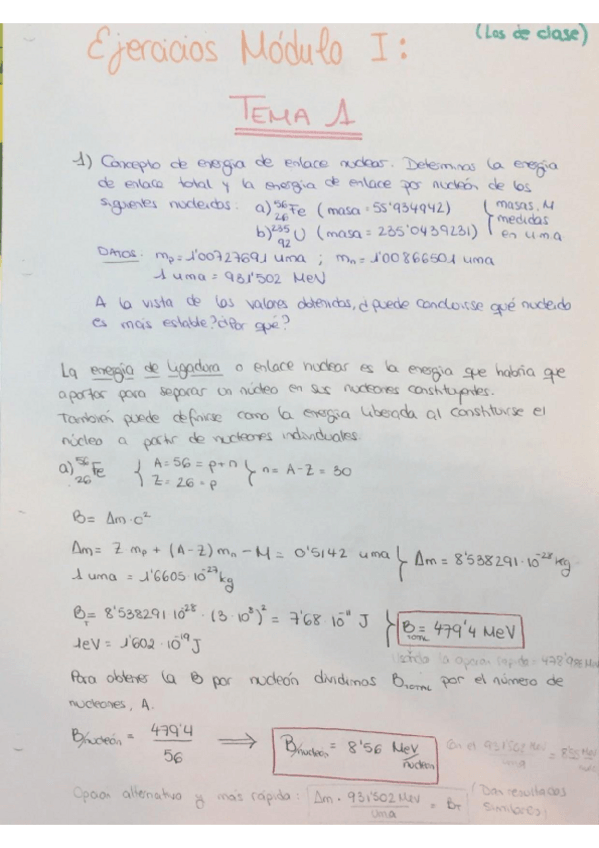 (Los de clase)
Ejercicios Módulo I:
TEMA 1
1) Concepto de energía de enlace nuclear. Determinas la energía
de enlace total y la energía de enlace por nucleón de los
siguientes nucleidos: a) ⁵⁶₂₆Fe (masa = 55'934942) } masas, M
b) ²³⁵₉₂U (masa = 235'0439231) } medidas en u.m.a
DATOS: mp = 1'00727691 uma ; mn = 1'00866501 uma
1 uma = 931'502 MeV
A la vista de los valores obtenidos, ¿puede concluirse qué nucleido
es más estable? ¿Por qué?
La energía de ligadura o enlace nuclear es la energía que habría que
aportar para separar un núcleo en sus nucleones constituyentes.
También puede definirse como la energía liberada al constituirse el
núcleo a partir de nucleones individuales.
a) ⁵⁶₂₆Fe { A = 56 = p + n
Z = 26 = p } n = A - Z = 30
B = Δm · c²
Δm = Z mp + (A-Z) mn - M = 0'5142 uma } Δm = 8'538291 · 10⁻²⁸ kg
1 uma = 1'6605 · 10⁻²⁷ kg
B_T = 8'538291 10²⁸ · (3 · 10⁸)² = 7'68 · 10⁻¹¹ J } B_TOTAL = 479'4 MeV
1eV = 1'602 · 10⁻¹⁹ J
Usando la opción rápida = 478'985 MeV
Para obtener la B por nucleón dividimos B_TOTAL por el número de
nucleones, A.
B/nucleón = 479'4 / 56 ⟹ B/nucleón = 8'56 MeV/nucleón
Con el 931'502 MeV/uma = 8'55 MeV/nucl
Opción alternativa y más rápida: Δm · 931'502 MeV/uma = B_T (Dan resultados
similares)